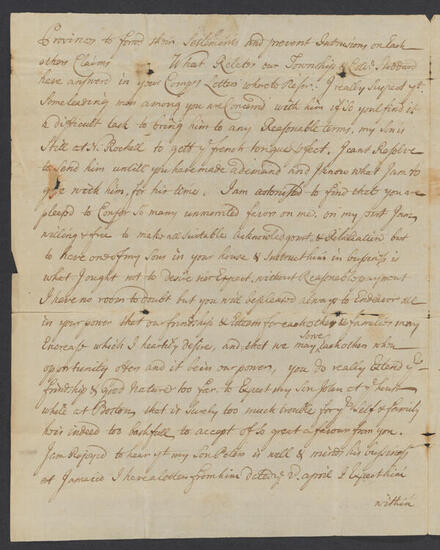 Provinces to forod their Setlements and prevent Intrusions on Each
others Claims What Relates our Township & Coll. Stoddard
have answerd in your Compys Letter whereto Refer. I really Suspect yt
Some leading men among you are Concernd with him if so you'l find it
a difficult task to bring him to any Reasonable terms, my Son is
Still at N. Rochell to gett ye french tongue p'fect, I cant Resolve
to Send him untill you have made a demand and I know what I am to
give with him, for his time. I am astonished to find that you are
pleased to Confer So many unmerited favor on me. on my part I am
willing & free to make all suitable acknowledgemt. & Retaliation but
to have one of my Sons in your house & Instruct him in business is
what I ought not to desire nor Expect, without Reasonable payment
I have no room to doubt but you will be pleased always to Endeavor all
in your power that our friendship & Esteem for each other & families may
Encrease which I heartily desire, and that we may Serve each other when
opportunity offers and it be in our power, you do really Extend yr
friendship & good Nature too far. to Expect my Son Plan at yr house
while at Boston, that is Surely too much trouble for yr Self & family
he is indeed too bashfull to accept of So great a favour from you.
I am Rejoyced to hear yt my Son Peter is well & minds his business
at Jamaica I have a letter from him dated ye 2d. april I Expect him
within